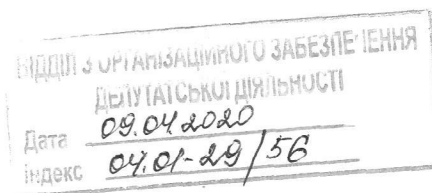 ВІДДІЛ З ОРГАНІЗАЦІЙНОГО ЗАБЕЗПЕЧЕННЯ
ДЕПУТАТСЬКОЇ ДІЯЛЬНОСТІ
Дата 09.04.2020
індекс 04.01-29/56